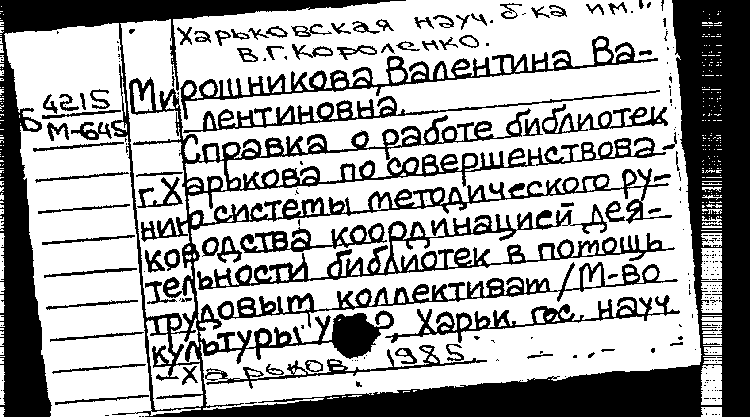 Харьковская науч. б-ка им.
В.Г. Короленко.
Б 4215
М-645
Мирошникова, Валентина Ва-
лентиновна.
Справка о работе библиотек
г. Харькова по совершенствова-
нию системы методического ру-
ководства координацией дея-
тельности библиотек в потощь
трудовыт коллективат / М-во
культуры Харьк. гос. науч.
- Харьков, 1985.